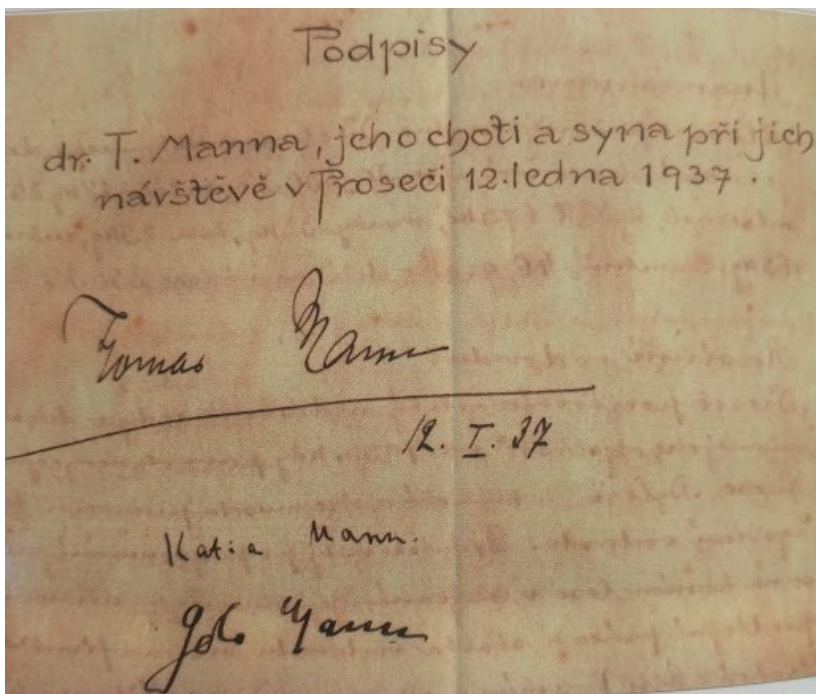 Podpisy
dr. T. Manna, jeho choti a syna při jich
návštěvě v Proseči 12. ledna 1937.
Tomas Mann
12. I. 37
Katia Mann.
Golo Mann